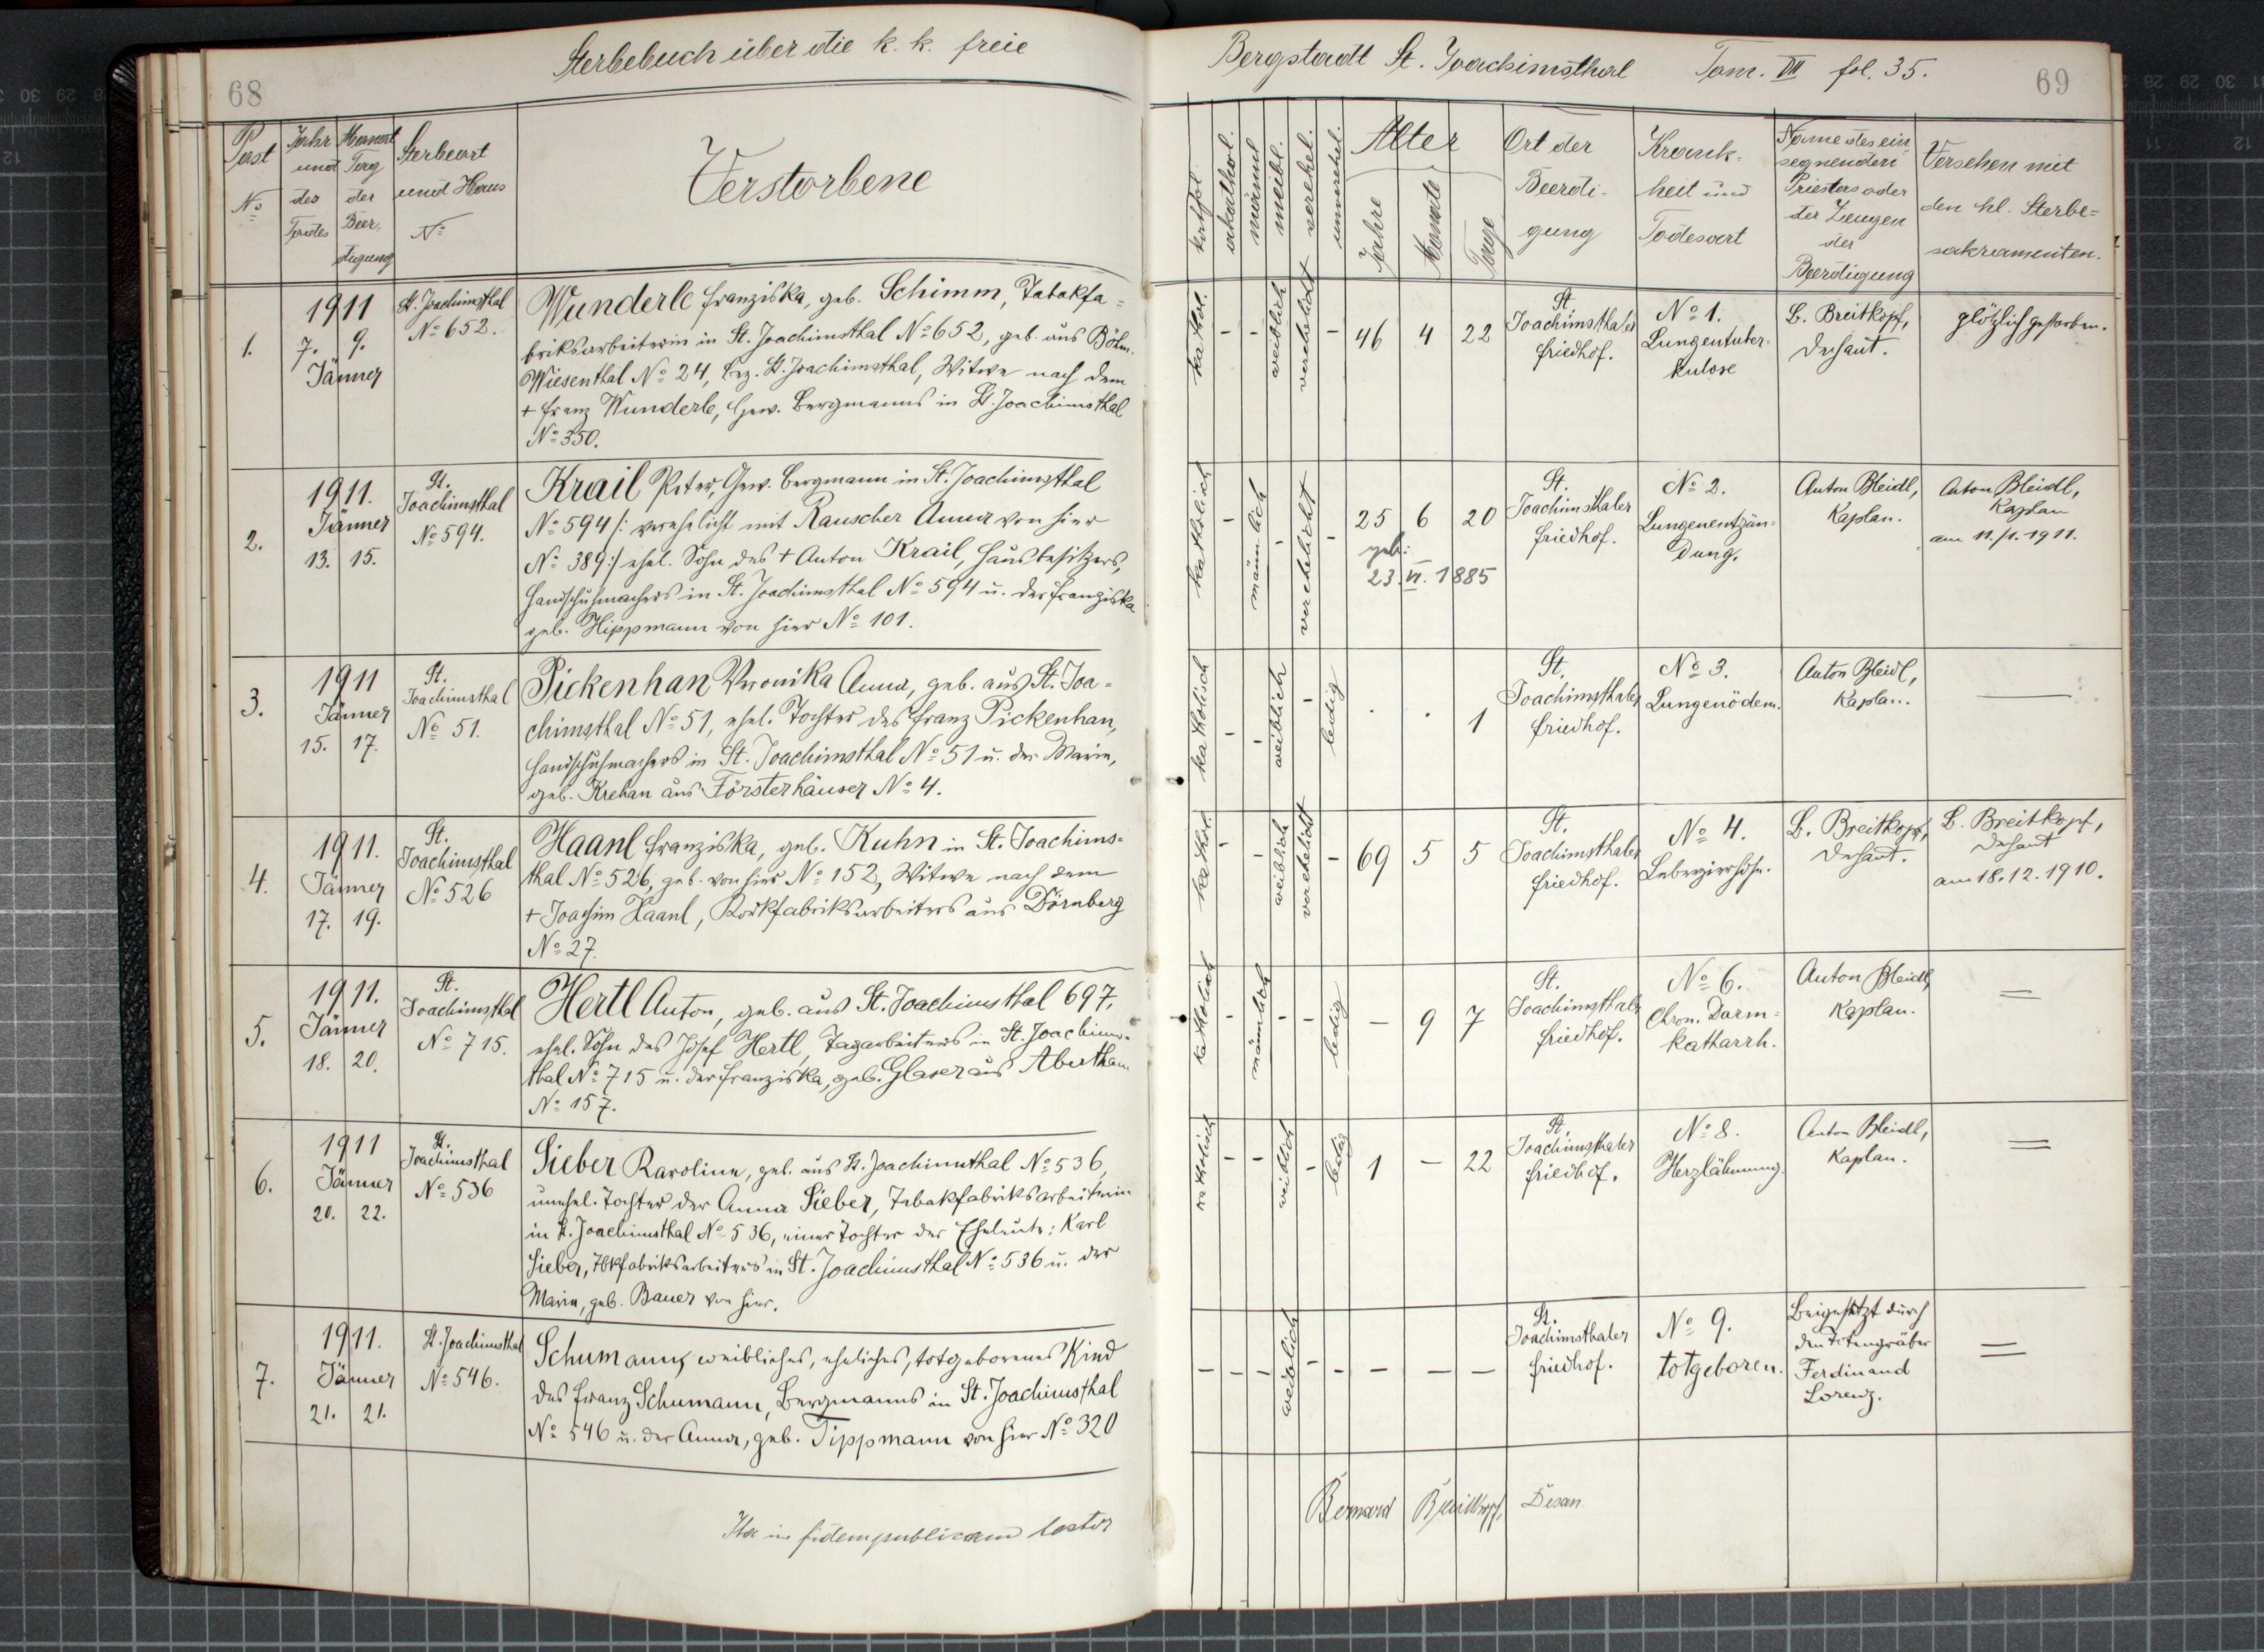 68
Sterbebuch über die k. k. freie
Post
No
Jahr
und
des
Todes
Monat
Tag
der
Beer-
digung
Sterbeort
und Haus
No
Verstorbene
1.
1911
7. 9.
Jänner
St. Joachimsthal
No 652.
Wunderle Franziska, geb. Schimm, Tabakfa-
briksarbeiterin in St. Joachimsthal No 652, geb. aus Böhm.
Wiesenthal No 24, bez. St. Joachimsthal, Witwe nach dem
+ Franz Wunderle, Gew. Bergmanns in St. Joachimsthal
No 350.
2.
1911.
Jänner
13. 15.
St.
Joachimsthal
No 594.
Krail Peter, Gew. Bergmann in St. Joachimsthal
No 594 /: verehelicht mit Rauscher Anna von hier
No 389 :/ ehel. Sohn des + Anton Krail, Hausbesitzers,
Handschuhmachers in St. Joachimsthal No 594 u. der Franziska
geb. Hippmann von hier No 101.
3.
1911
Jänner
15. 17.
St.
Joachimsthal
No 51.
Pickenhan Veronika Anna, geb. aus St. Joa-
chimsthal No 51, ehel. Tochter des Franz Pickenhan,
Handschuhmachers in St. Joachimsthal No 51 u. der Marie,
geb. Krehan aus Försterhäuser No 4.
4.
1911.
Jänner
17. 19.
St.
Joachimsthal
No 526
Haanl Franziska, geb. Kuhn in St. Joachims-
thal No 526, geb. von hier No 152, Witwe nach dem
+ Joachim Haanl, Korkfabriksarbeiters aus Dörnberg
No 27.
5.
1911.
Jänner
18. 20.
St.
Joachimsthal
No 715.
Hertl Anton, geb. aus St. Joachimsthal 697,
ehel. Sohn des Josef Hertl, Tagarbeiters in St. Joachims-
thal No 715 u. der Franziska, geb. Glaser aus Abertham
No 157.
6.
1911
Jänner
20. 22.
St.
Joachimsthal
No 536
Sieber Karoline, geb. aus St. Joachimsthal No 536,
unehel. Tochter der Anna Sieber, Tabakfabriksarbeiterin
in St. Joachimsthal No 536, einer Tochter der Eheleute: Karl
Sieber, Tbkfabriksarbeiters in St. Joachimsthal No 536 u. der
Marie, geb. Bauer von hier.
7.
1911.
Jänner
21. 21.
St. Joachimsthal
No 546.
Schumann, weibliches, eheliches, totgeborenes Kind
des Franz Schumann, Bergmanns in St. Joachimsthal
No 546 u. der Anna, geb. Tippmann von hier No 320
Ita in fidem publicam testor
Bergstadt St. Joachimsthal Tom. VII fol. 35.
69
kathol.
akathol.
männl
weibl.
verehel.
unverehel.
Alter
Jahre
Monate
Tage
Ort der
Beerdi-
gung
Krank-
heit und
Todesart
Name des ein
segnenden
Priesters oder
der Zeugen
der
Beerdigung
Versehen mit
den hl. Sterbe=
sakramenten.
kathol. - - weiblich verehelicht - 46 4 22
St.
Joachimsthaler
Friedhof.
No 1.
Lungentuber-
kulose
B. Breitkopf,
Dechant.
plötzlich gestorben.
katholisch - männlich - verehelicht - 25 6 20
geb:
23. VI. 1885
St.
Joachimsthaler
Friedhof.
No 2.
Lungenentzün-
dung.
Anton Bleidl,
Kaplan.
Anton Bleidl,
Kaplan
am 11./1. 1911.
katholisch - - weiblich - ledig . . 1
St.
Joachimsthaler
Friedhof.
No 3.
Lungenödem.
Anton Bleidl,
Kaplan.
kathol. - - weiblich verehelicht - 69 5 5
St.
Joachimsthaler
Friedhof.
No 4.
Leberzirrhose.
B. Breitkopf,
Dechant.
B. Breitkopf,
Dechant
am 18. 12. 1910.
katholisch - männlich - - ledig - 9 7
St.
Joachimsthaler
Friedhof.
No 6.
Chron. Darm-
katharrh.
Anton Bleidl,
Kaplan.
katholisch - - weiblich - ledig 1 - 22
St.
Joachimsthaler
Friedhof.
No 8.
Herzlähmung.
Anton Bleidl,
Kaplan.
- - - weiblich - - - - -
St.
Joachimsthaler
Friedhof.
No 9.
totgeboren.
Beigesetzt durch
den Totengräber
Ferdinand
Lorenz.
Bernard Breitkopf, Dechan